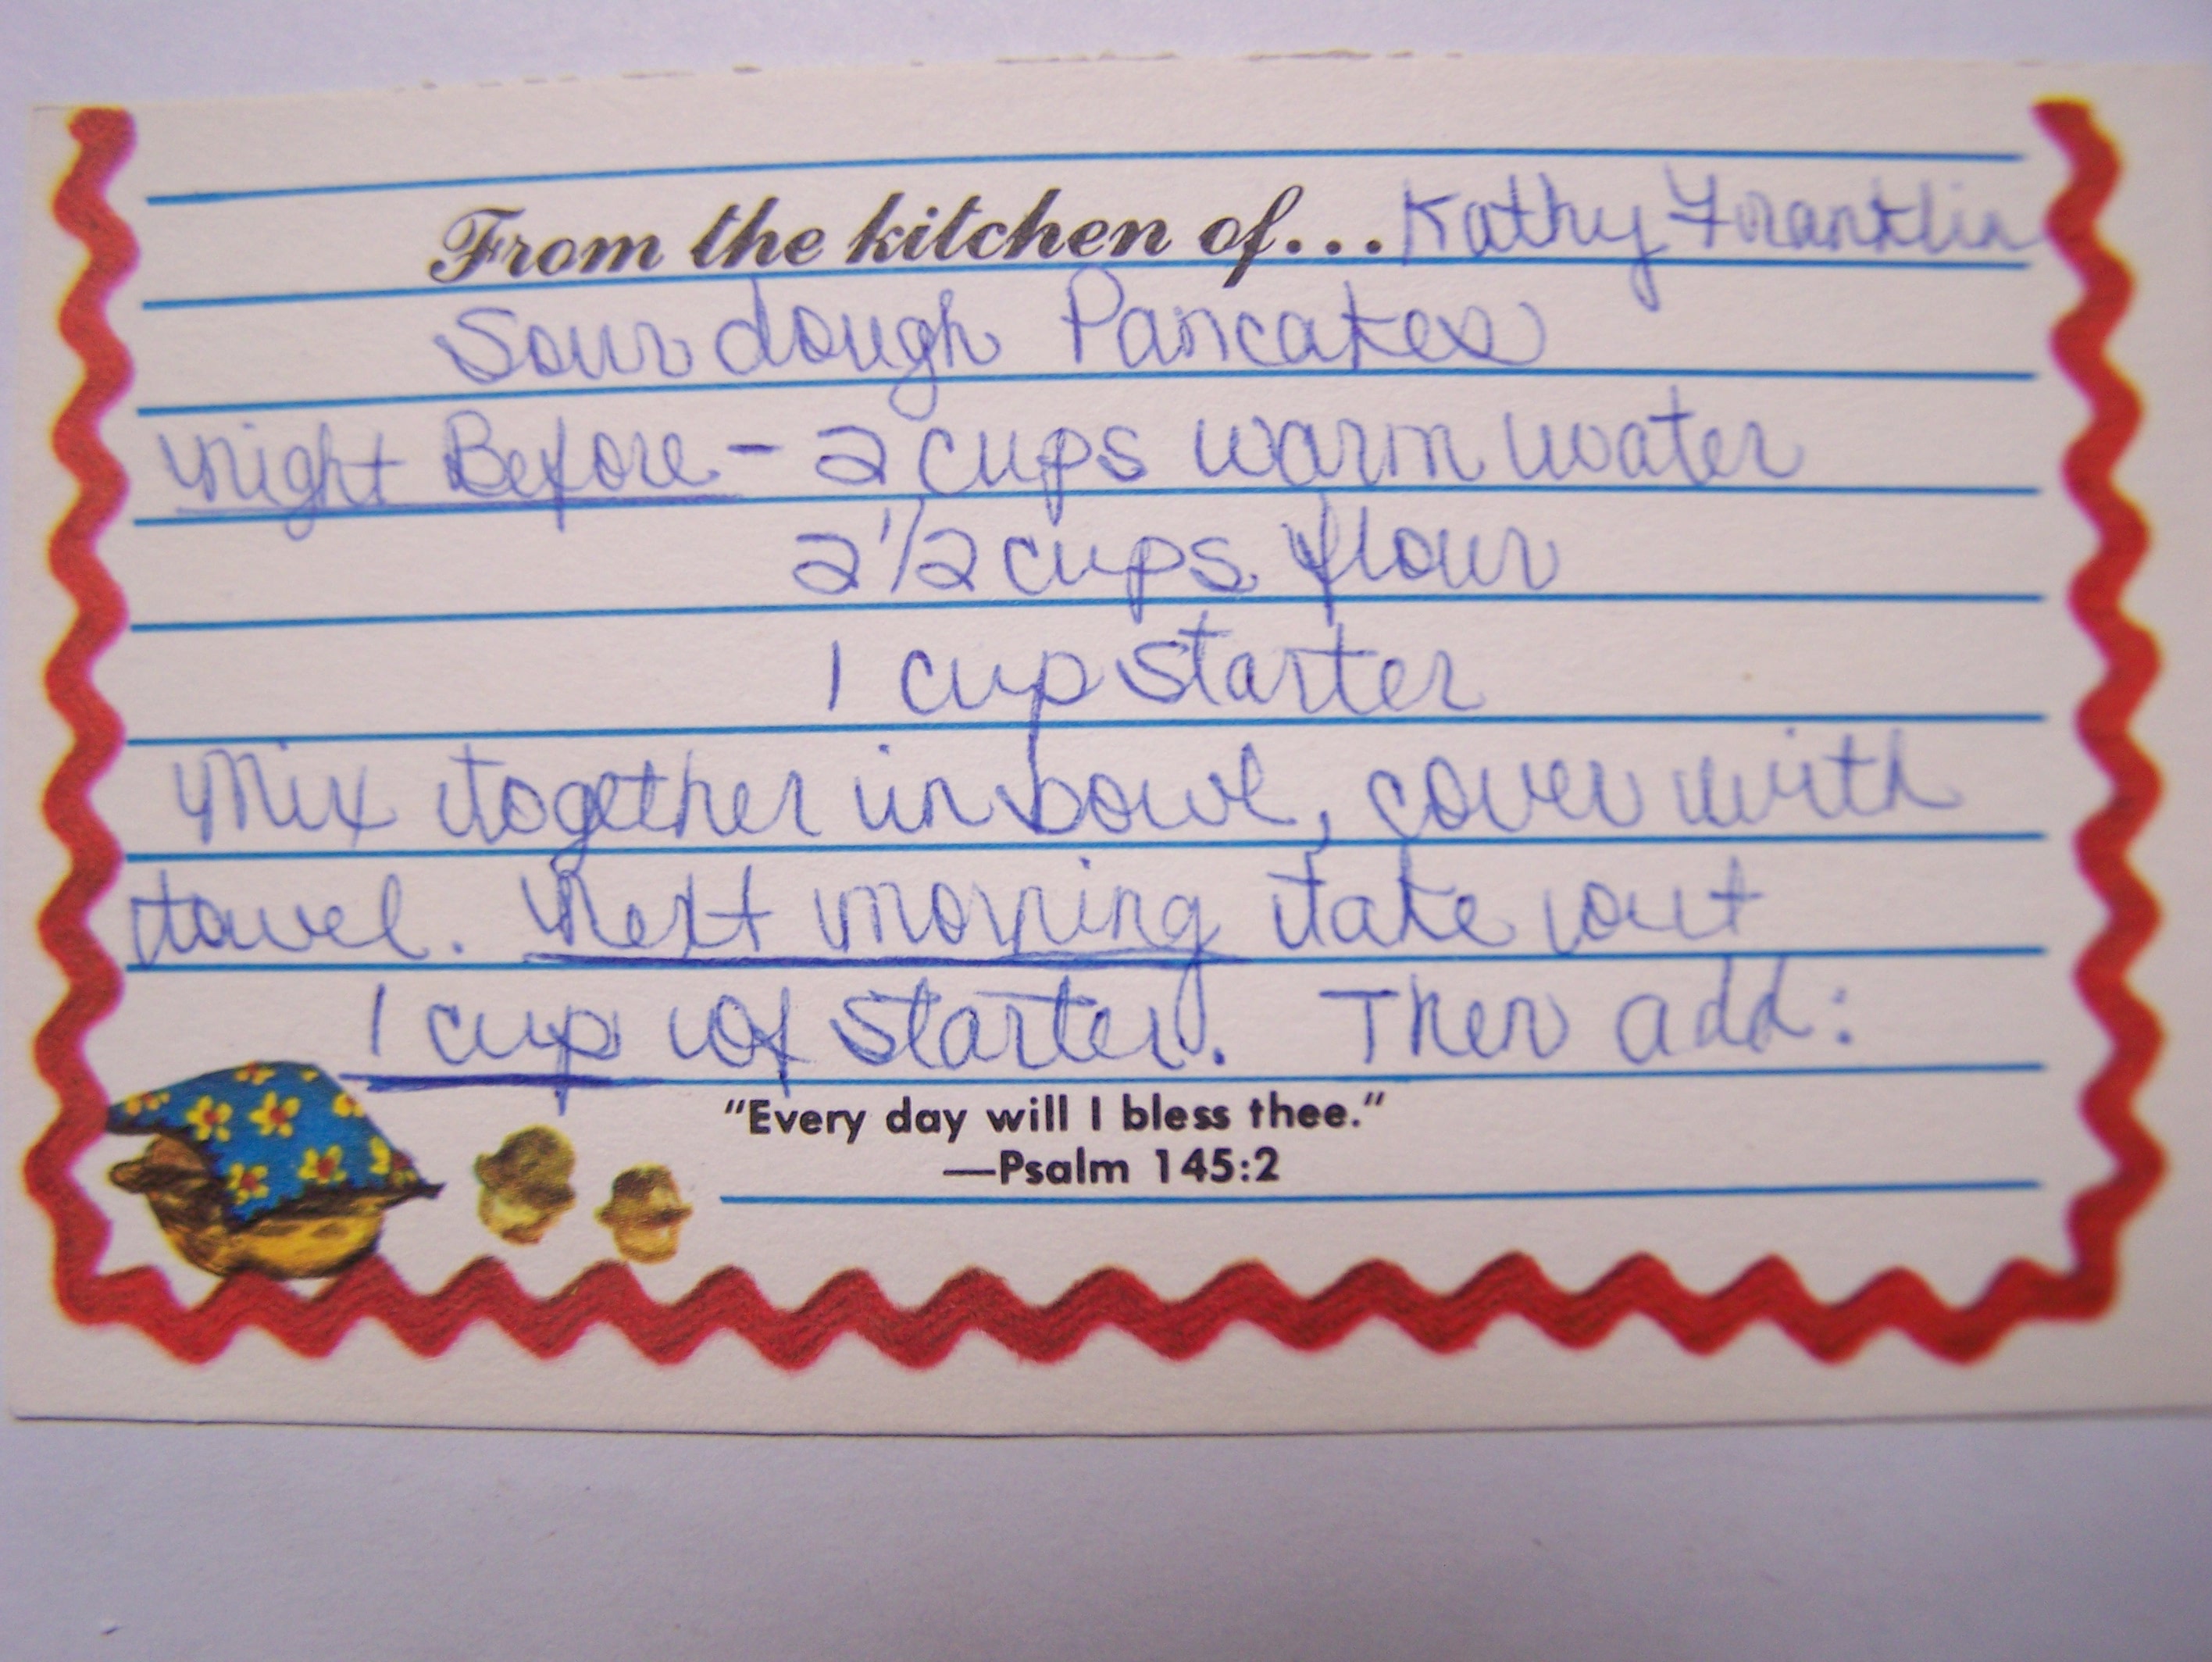 From the kitchen of... Kathy Franklin
Sour dough Pancakes
Night Before - 2 cups warm water
2 1/2 cups flour
1 cup starter
Mix together in bowl, cover with
towel. Next morning take out
1 cup of starter. Then add:
"Every day will I bless thee."
—Psalm 145:2